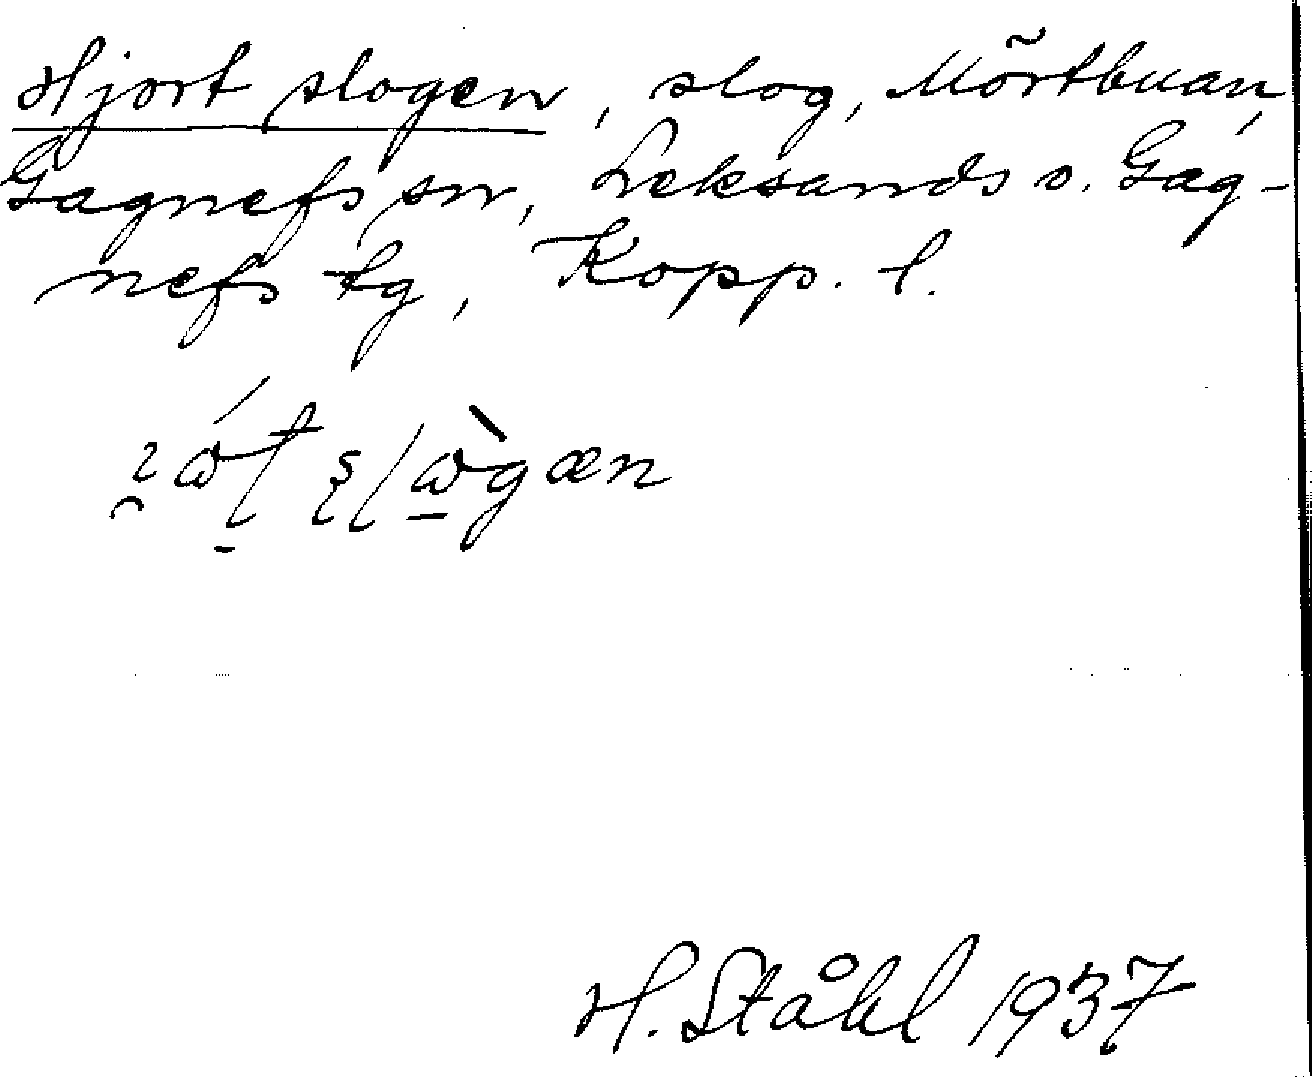 Hjort slogen, slog, Mörtbuan,
Gagnefs sn, Leksands o. Gag-
nefs tg, Kopp. l.
H. Ståhl 1937